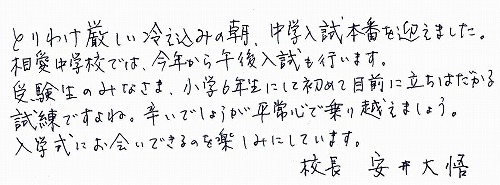 とりわけ厳しい冷え込みの朝、中学入試本番を迎えました。
相愛中学校では、今年から午後入試も行います。
受験生のみなさま、小学6年生にして初めて目前に立ちはだかる
試練ですよね。辛いでしょうが平常心で乗り越えましょう。
入学式にお会いできるのを楽しみにしています。
校長 安井大悟